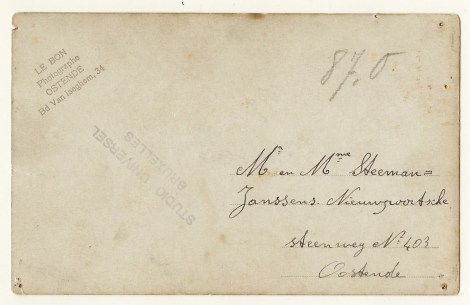 LE BON
Photographe
OSTENDE
Bd Van Iseghem, 34
87,0.
STUDIO UNIVERSEL
BRUXELLES
Mr en Mme Steeman=
Janssens. Nieuwpoortsche
steenweg No 403
Oostende